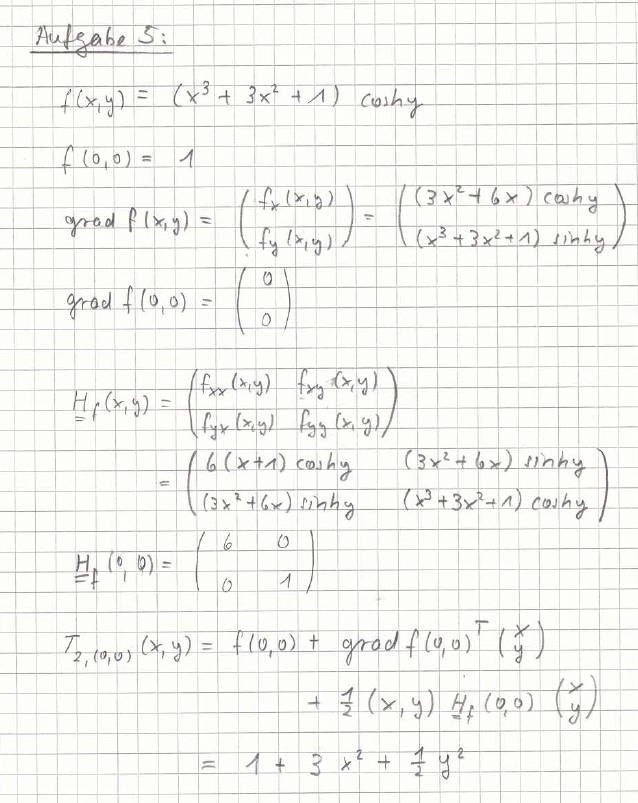 Aufgabe 5:
f(x,y) = (x³ + 3x² + 1) coshy
f(0,0) = 1
grad f(x,y) = ( fx(x,y) fy(x,y) ) = ( (3x²+6x) coshy (x³+3x²+1) sinhy )
grad f(0,0) = ( 0 0 )
H_f(x,y) = ( fxx(x,y) fxy(x,y) fyx(x,y) fyy(x,y) )
= ( 6(x+1) coshy (3x²+6x) sinhy (3x²+6x) sinhy (x³+3x²+1) coshy )
H_f(0,0) = ( 6 0 0 1 )
T2,(0,0)(x,y) = f(0,0) + grad f(0,0)ᵀ ( x y )
+ ½ (x,y) H_f(0,0) ( x y )
= 1 + 3x² + ½ y²